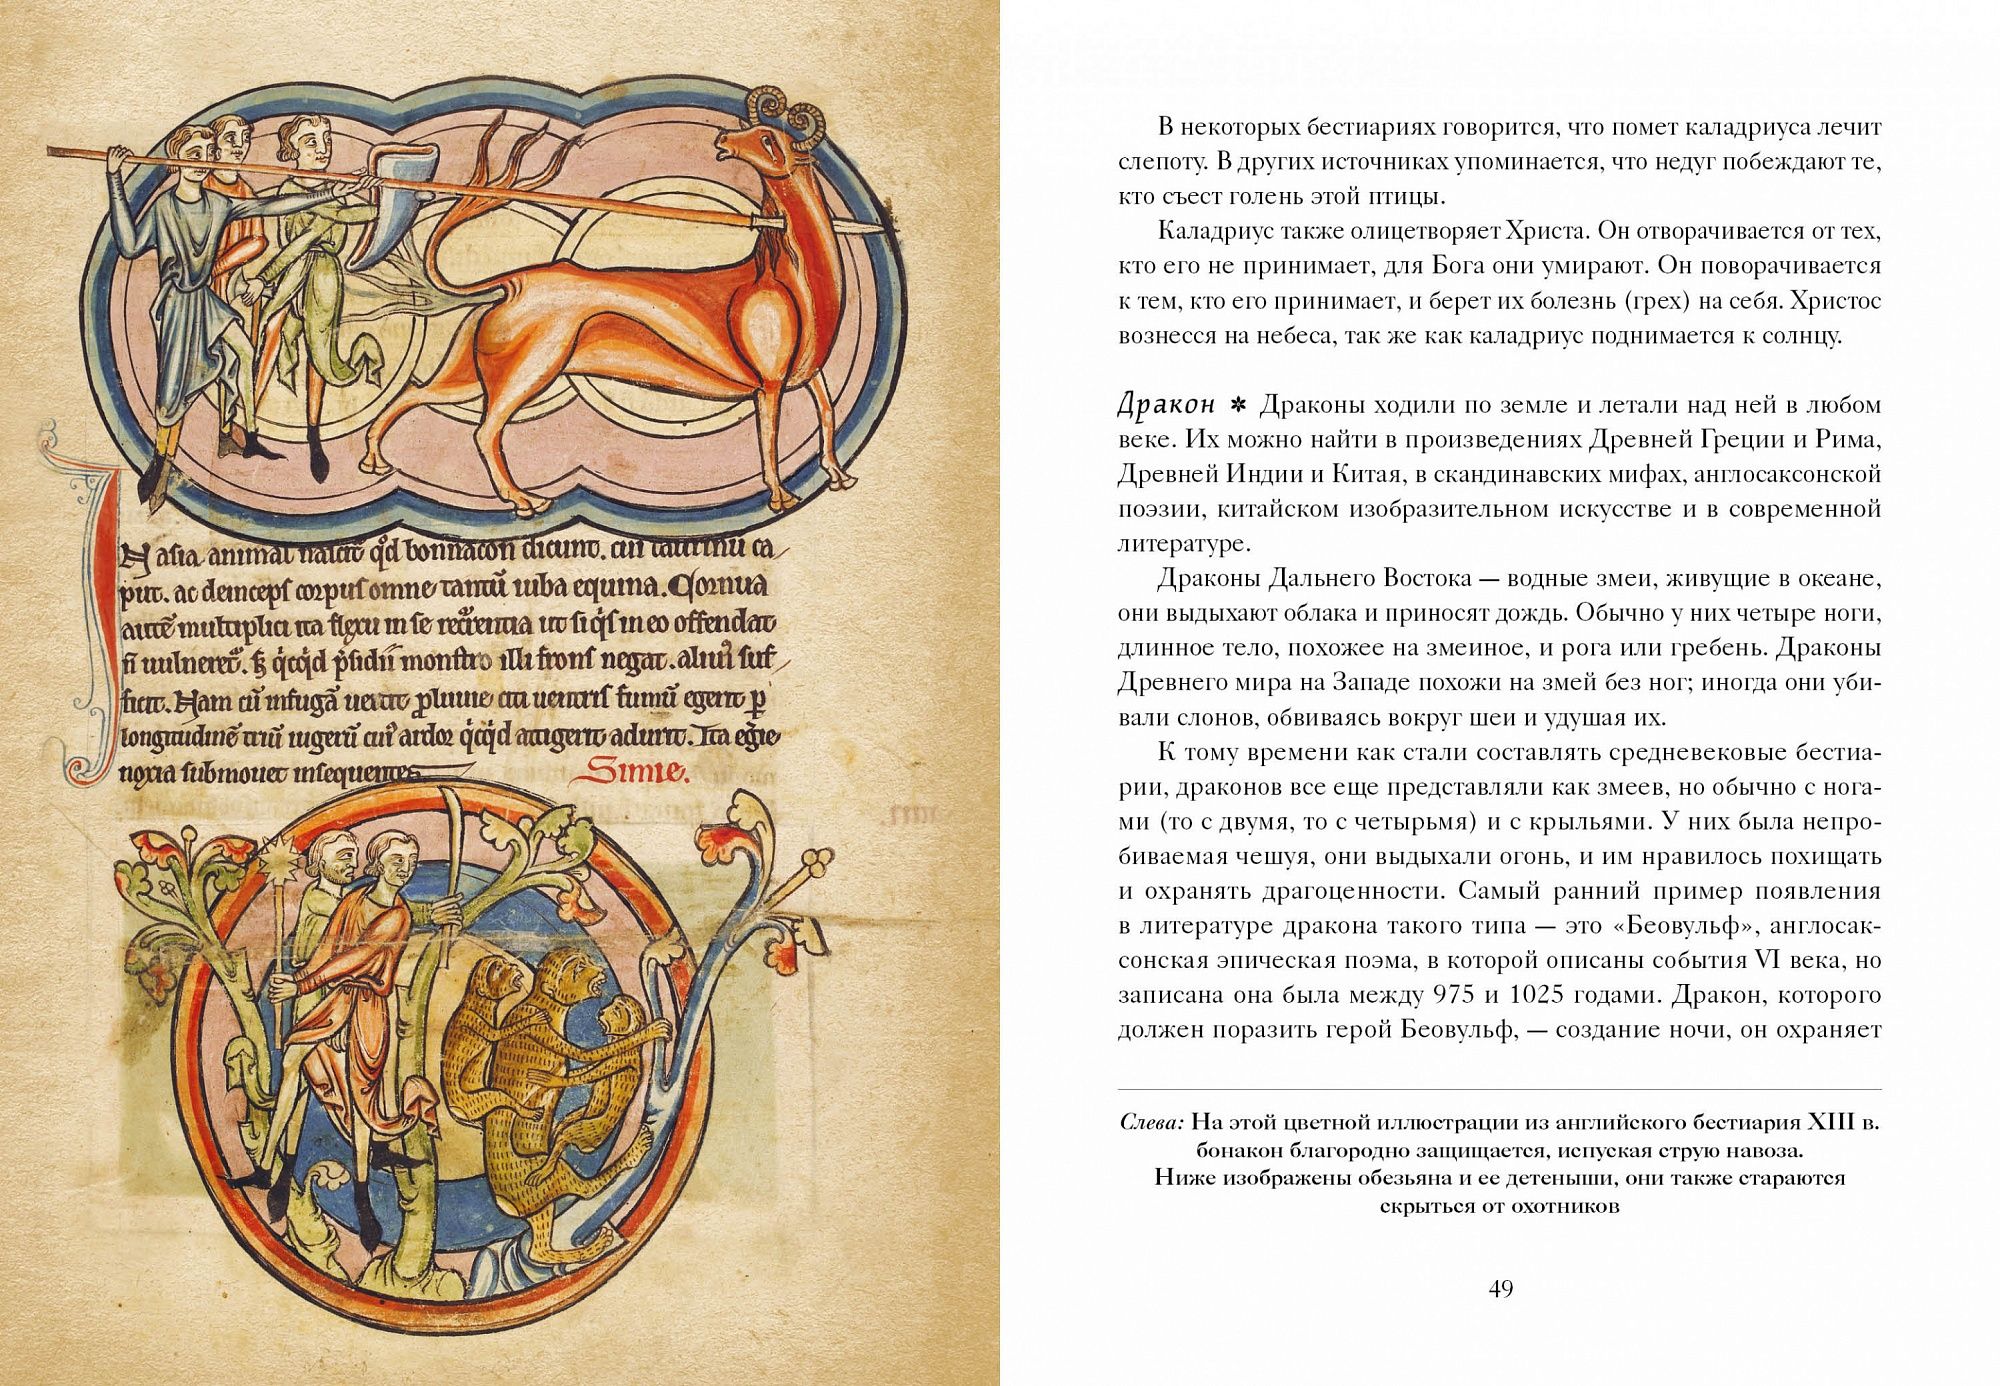 N asia animal nascit͛ qd̛ bonnacon dicunt. cui taurinū ca/
put. ac deinceps corpus omne tantū iuba equina. Cornua
autē multiplici ita flexu in se recͬrentia ut si qͥs in eo offendat
n̄ uulneret͛. s; qͥcqͥd p̄sidii monstro illi frons negat. aluuͥ suf/
ficit. Nam cū in fugā uertit͛ proluuie citi uentris fumū egerit p̱
longitudinē triū iugerū cuiͥ ardor qͥcqͥd attigerit adurit. Ita egͥie
noxia submouet insequentes
Simie.
В некоторых бестиариях говорится, что помет каладриуса лечит
слепоту. В других источниках упоминается, что недуг побеждают те,
кто съест голень этой птицы.
Каладриус также олицетворяет Христа. Он отворачивается от тех,
кто его не принимает, для Бога они умирают. Он поворачивается
к тем, кто его принимает, и берет их болезнь (грех) на себя. Христос
вознесся на небеса, так же как каладриус поднимается к солнцу.
Дракон ✽ Драконы ходили по земле и летали над ней в любом
веке. Их можно найти в произведениях Древней Греции и Рима,
Древней Индии и Китая, в скандинавских мифах, англосаксонской
поэзии, китайском изобразительном искусстве и в современной
литературе.
Драконы Дальнего Востока — водные змеи, живущие в океане,
они выдыхают облака и приносят дождь. Обычно у них четыре ноги,
длинное тело, похожее на змеиное, и рога или гребень. Драконы
Древнего мира на Западе похожи на змей без ног; иногда они уби-
вали слонов, обвиваясь вокруг шеи и удушая их.
К тому времени как стали составлять средневековые бестиа-
рии, драконов все еще представляли как змеев, но обычно с нога-
ми (то с двумя, то с четырьмя) и с крыльями. У них была непро-
биваемая чешуя, они выдыхали огонь, и им нравилось похищать
и охранять драгоценности. Самый ранний пример появления
в литературе дракона такого типа — это «Беовульф», англосак-
сонская эпическая поэма, в которой описаны события VI века, но
записана она была между 975 и 1025 годами. Дракон, которого
должен поразить герой Беовульф, — создание ночи, он охраняет
Слева: На этой цветной иллюстрации из английского бестиария XIII в.
бонакон благородно защищается, испуская струю навоза.
Ниже изображены обезьяна и ее детеныши, они также стараются
скрыться от охотников
49